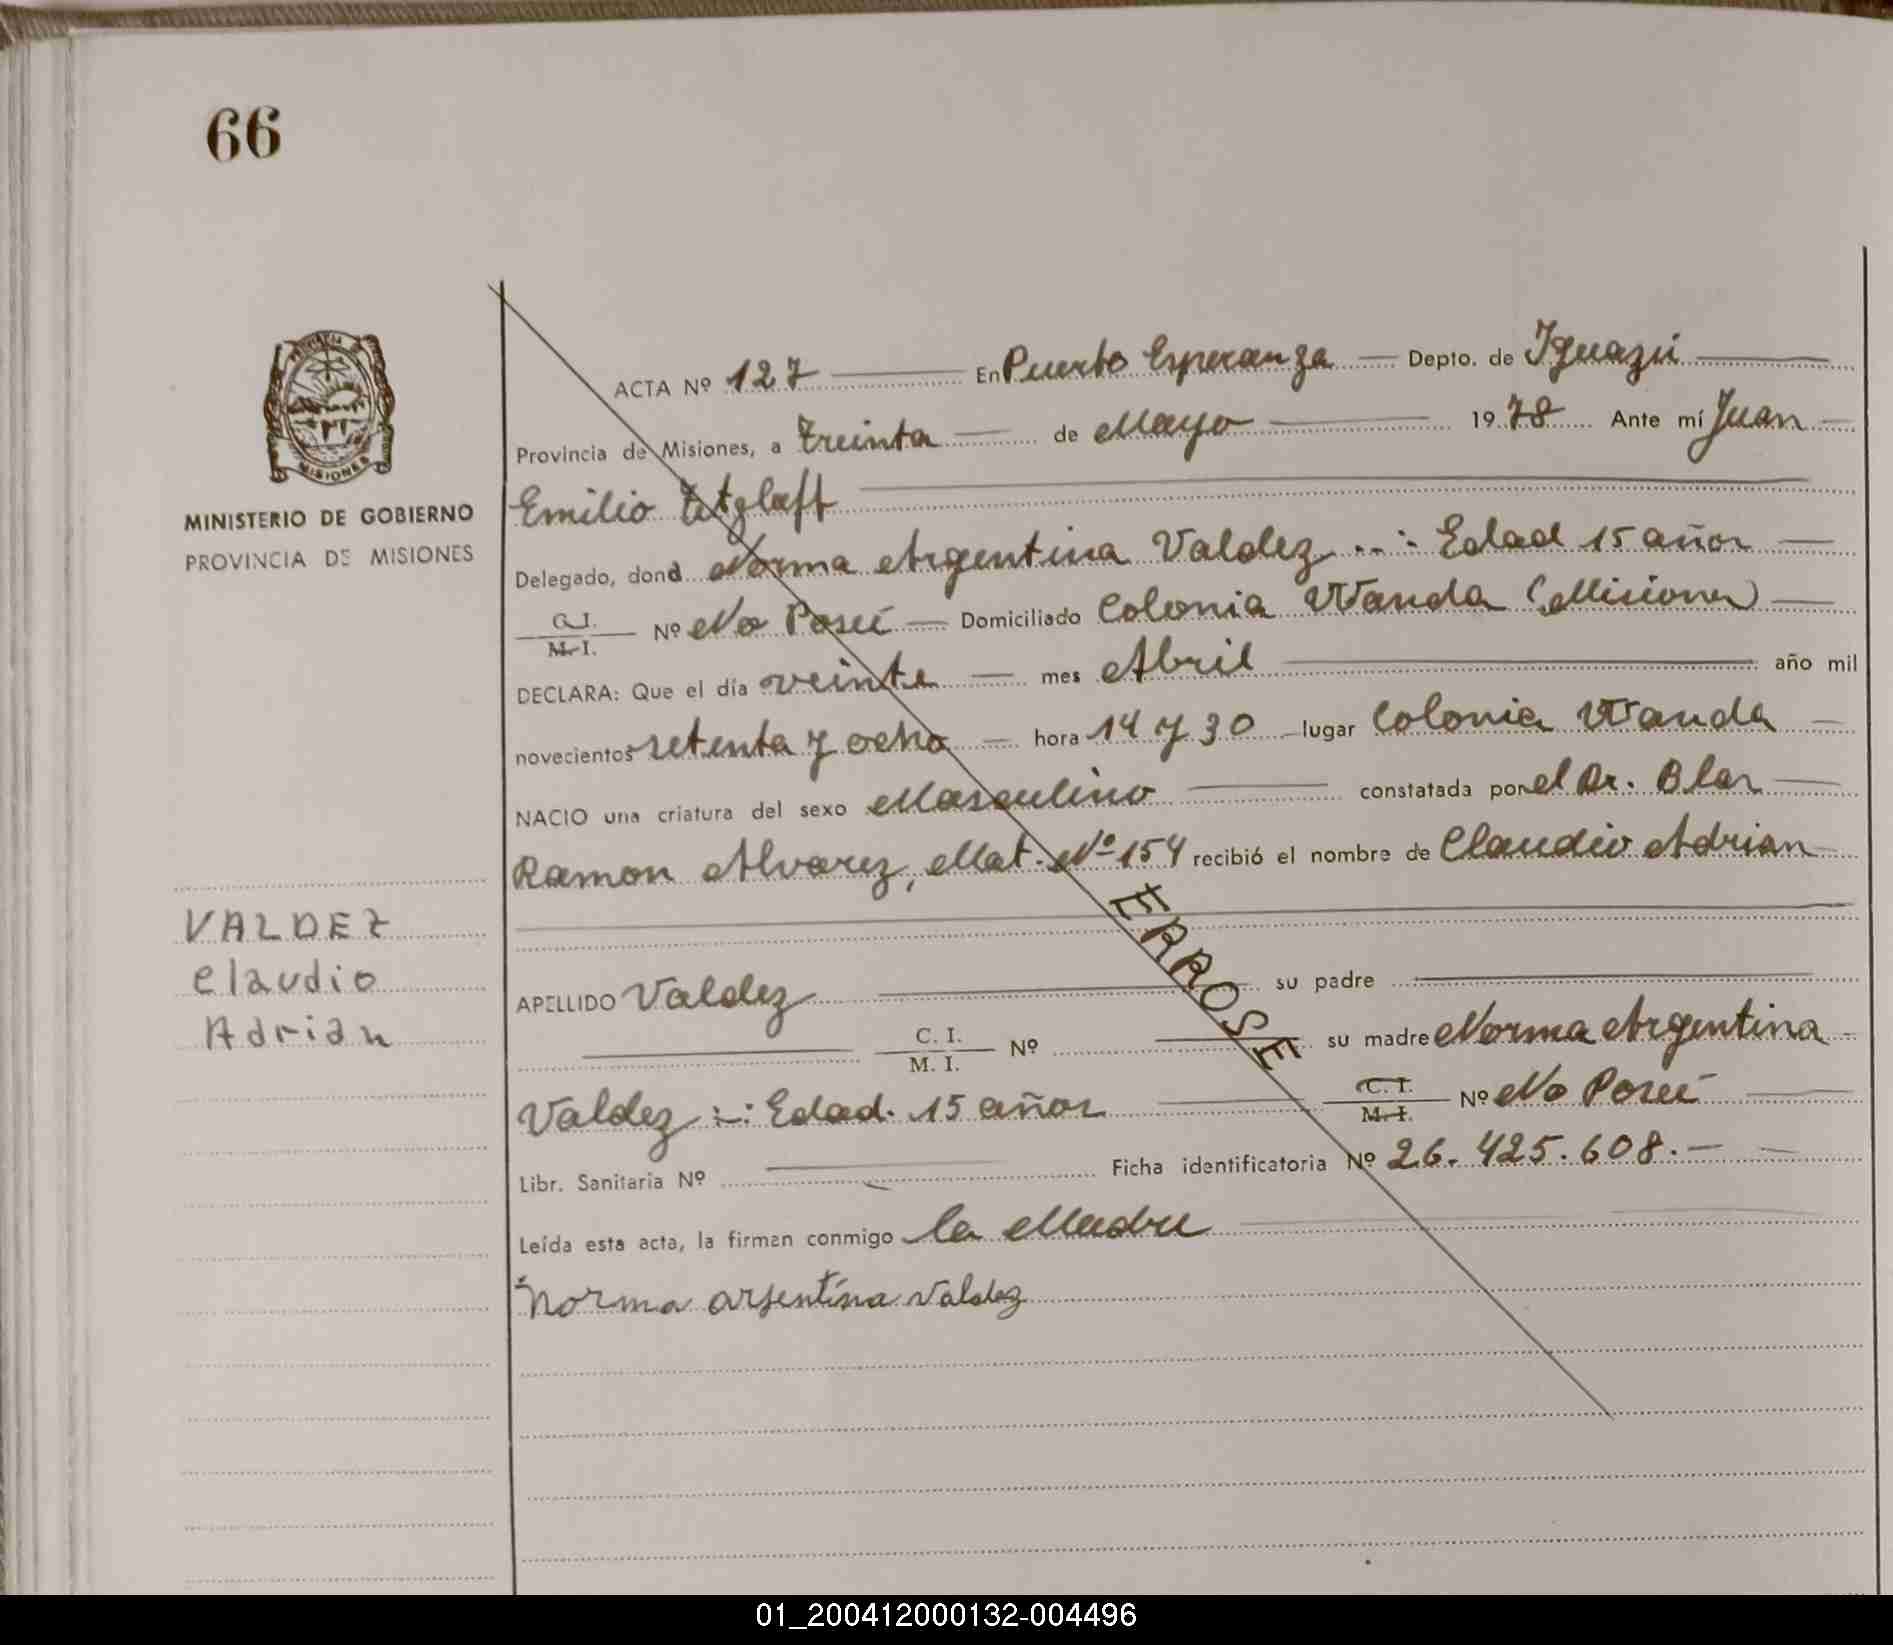 66
MINISTERIO DE GOBIERNO
PROVINCIA DE MISIONES
ACTA Nº 127 En Puerto Esperanza Depto. de Iguazú
Provincia de Misiones, a treinta de Mayo 1978 Ante mí Juan
Emilio
Delegado, don d Norma Argentina Valdez Edad 15 años
C.I. M.I. Nº No Posee Domiciliado Colonia Wanda (Misiones)
DECLARA: Que el día veinte mes Abril año mil
novecientos setenta y ocho hora 14 y 30 lugar Colonia Wanda
NACIO una criatura del sexo Masculino constatada por el Dr. Blas
Ramon Alvarez, Mat. Nº 154 recibió el nombre de Claudio Adrian
VALDEZ
claudio
Adrian
ERROSE
APELLIDO Valdez su padre
C. I. M. I. Nº su madre Norma Argentina
Valdez Edad. 15 años C. I. M. I. Nº No Posee
Libr. Sanitaria Nº Ficha identificatoria Nº 26.425.608.-
Leída esta acta, la firman conmigo la Madre
Norma argentina Valdez
01_200412000132-004496